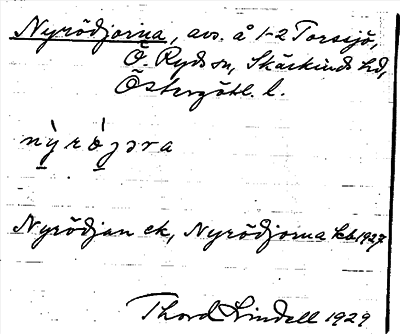 Nyrödjorna, avs. å 1-2 Torsjö,
Ö. Ryds sn, Skärkinds hd,
Östergötl. l.
nỳrò̤ɟəra
Nyrödjan ek, Nyrödjorna kb 1927
Thord Lindell 1929